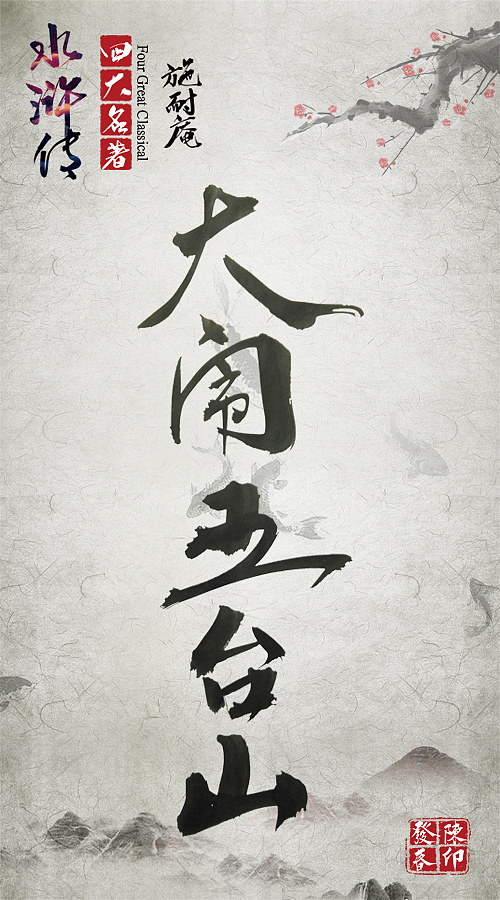 水浒传
四大名著
Four Great Classical
施耐庵
大闹五台山
陈印
發春